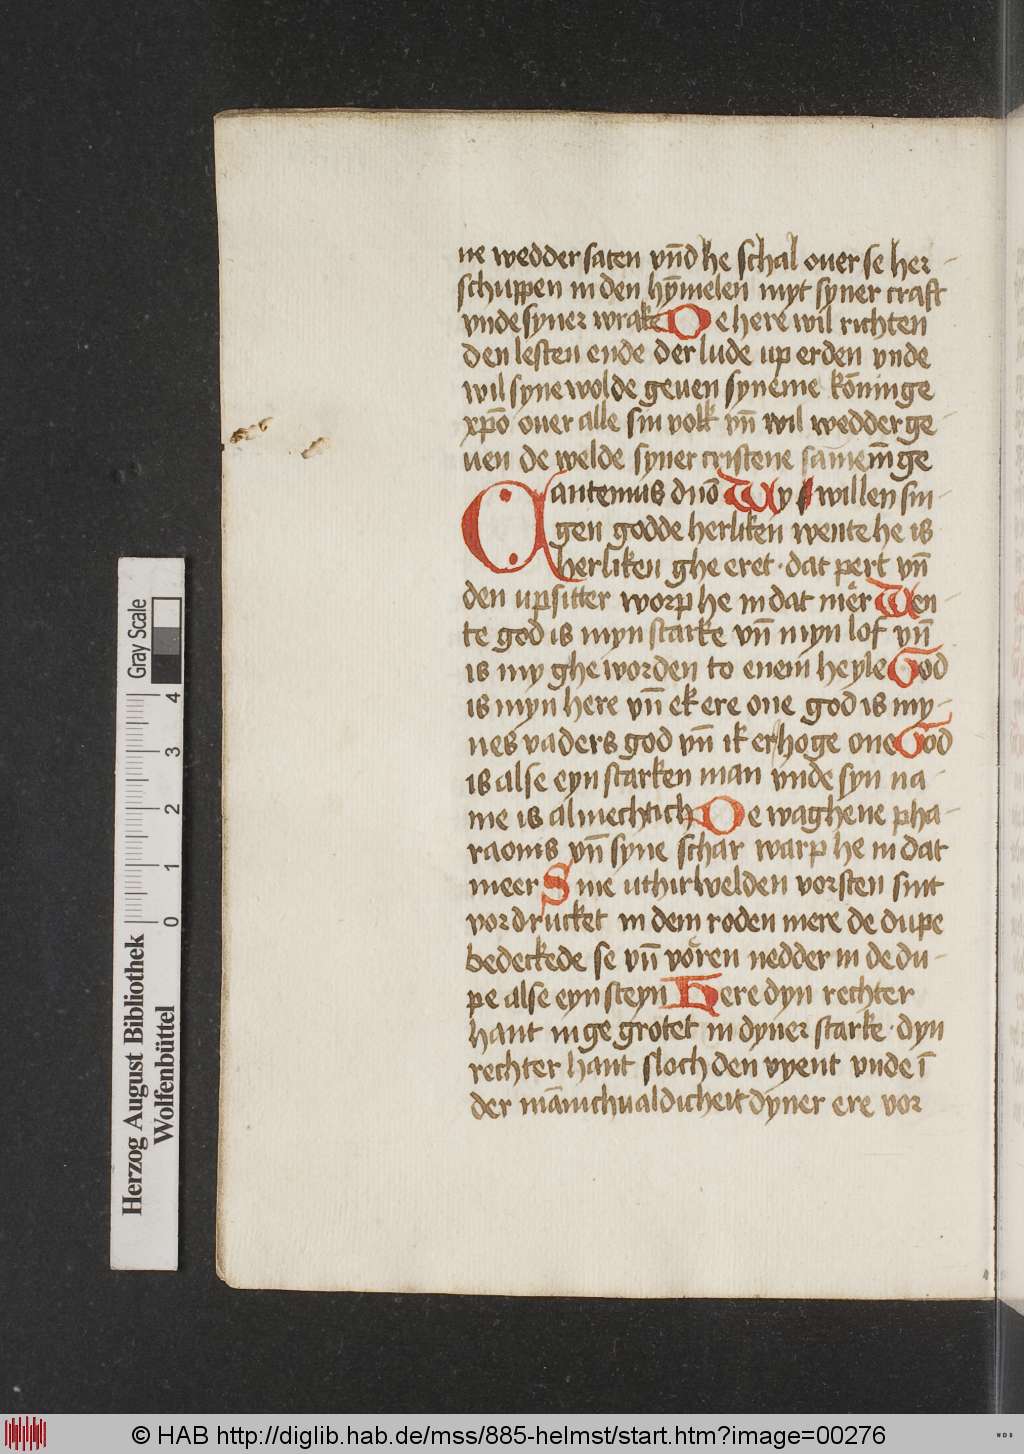 ne wedder saten vn̄d he schal ouer se her-
schuppen in den hȳmelen myt syner craft
vnde syner wrake De here wil richten
den lesten ende der lude up erden vnde
wil syne wolde geuen syneme kōninge
xpō ouer alle sin volk vn̄ wil wedder ge-
uen de welde syner cristene samein̄ge
Cantemus dnō Wy willen sin-
gen godde herliken wente he is
herliken ghe eret · dat pert vn̄
den upsitter worp he in dat mer Wen-
te god is myn starke vn̄ myn lof vn̄
is my ghe worden to enem heyle God
is myn here vn̄ ek ere one god is my-
nes vaders god vn̄ ik erhoge one God
is alse eyn starken man vnde syn na-
me is almechtich De waghene pha-
raonis vn̄ syne schar warp he in dat
meer Sine uthirwelden vorsten sint
vordrucket in dem roden mere de dupe
bedeckede se vn̄ voren nedder in de du-
pe alse eyn steyn Here dyn rechter
hant in ge grotet in dyner starke · dyn
rechter hant sloch den vyent vnde ī
der mānichualdicheit dyner ere vor
Herzog August Bibliothek
Wolfenbüttel
0 1 2 3 4
Gray Scale
© HAB http://diglib.hab.de/mss/885-helmst/start.htm?image=00276